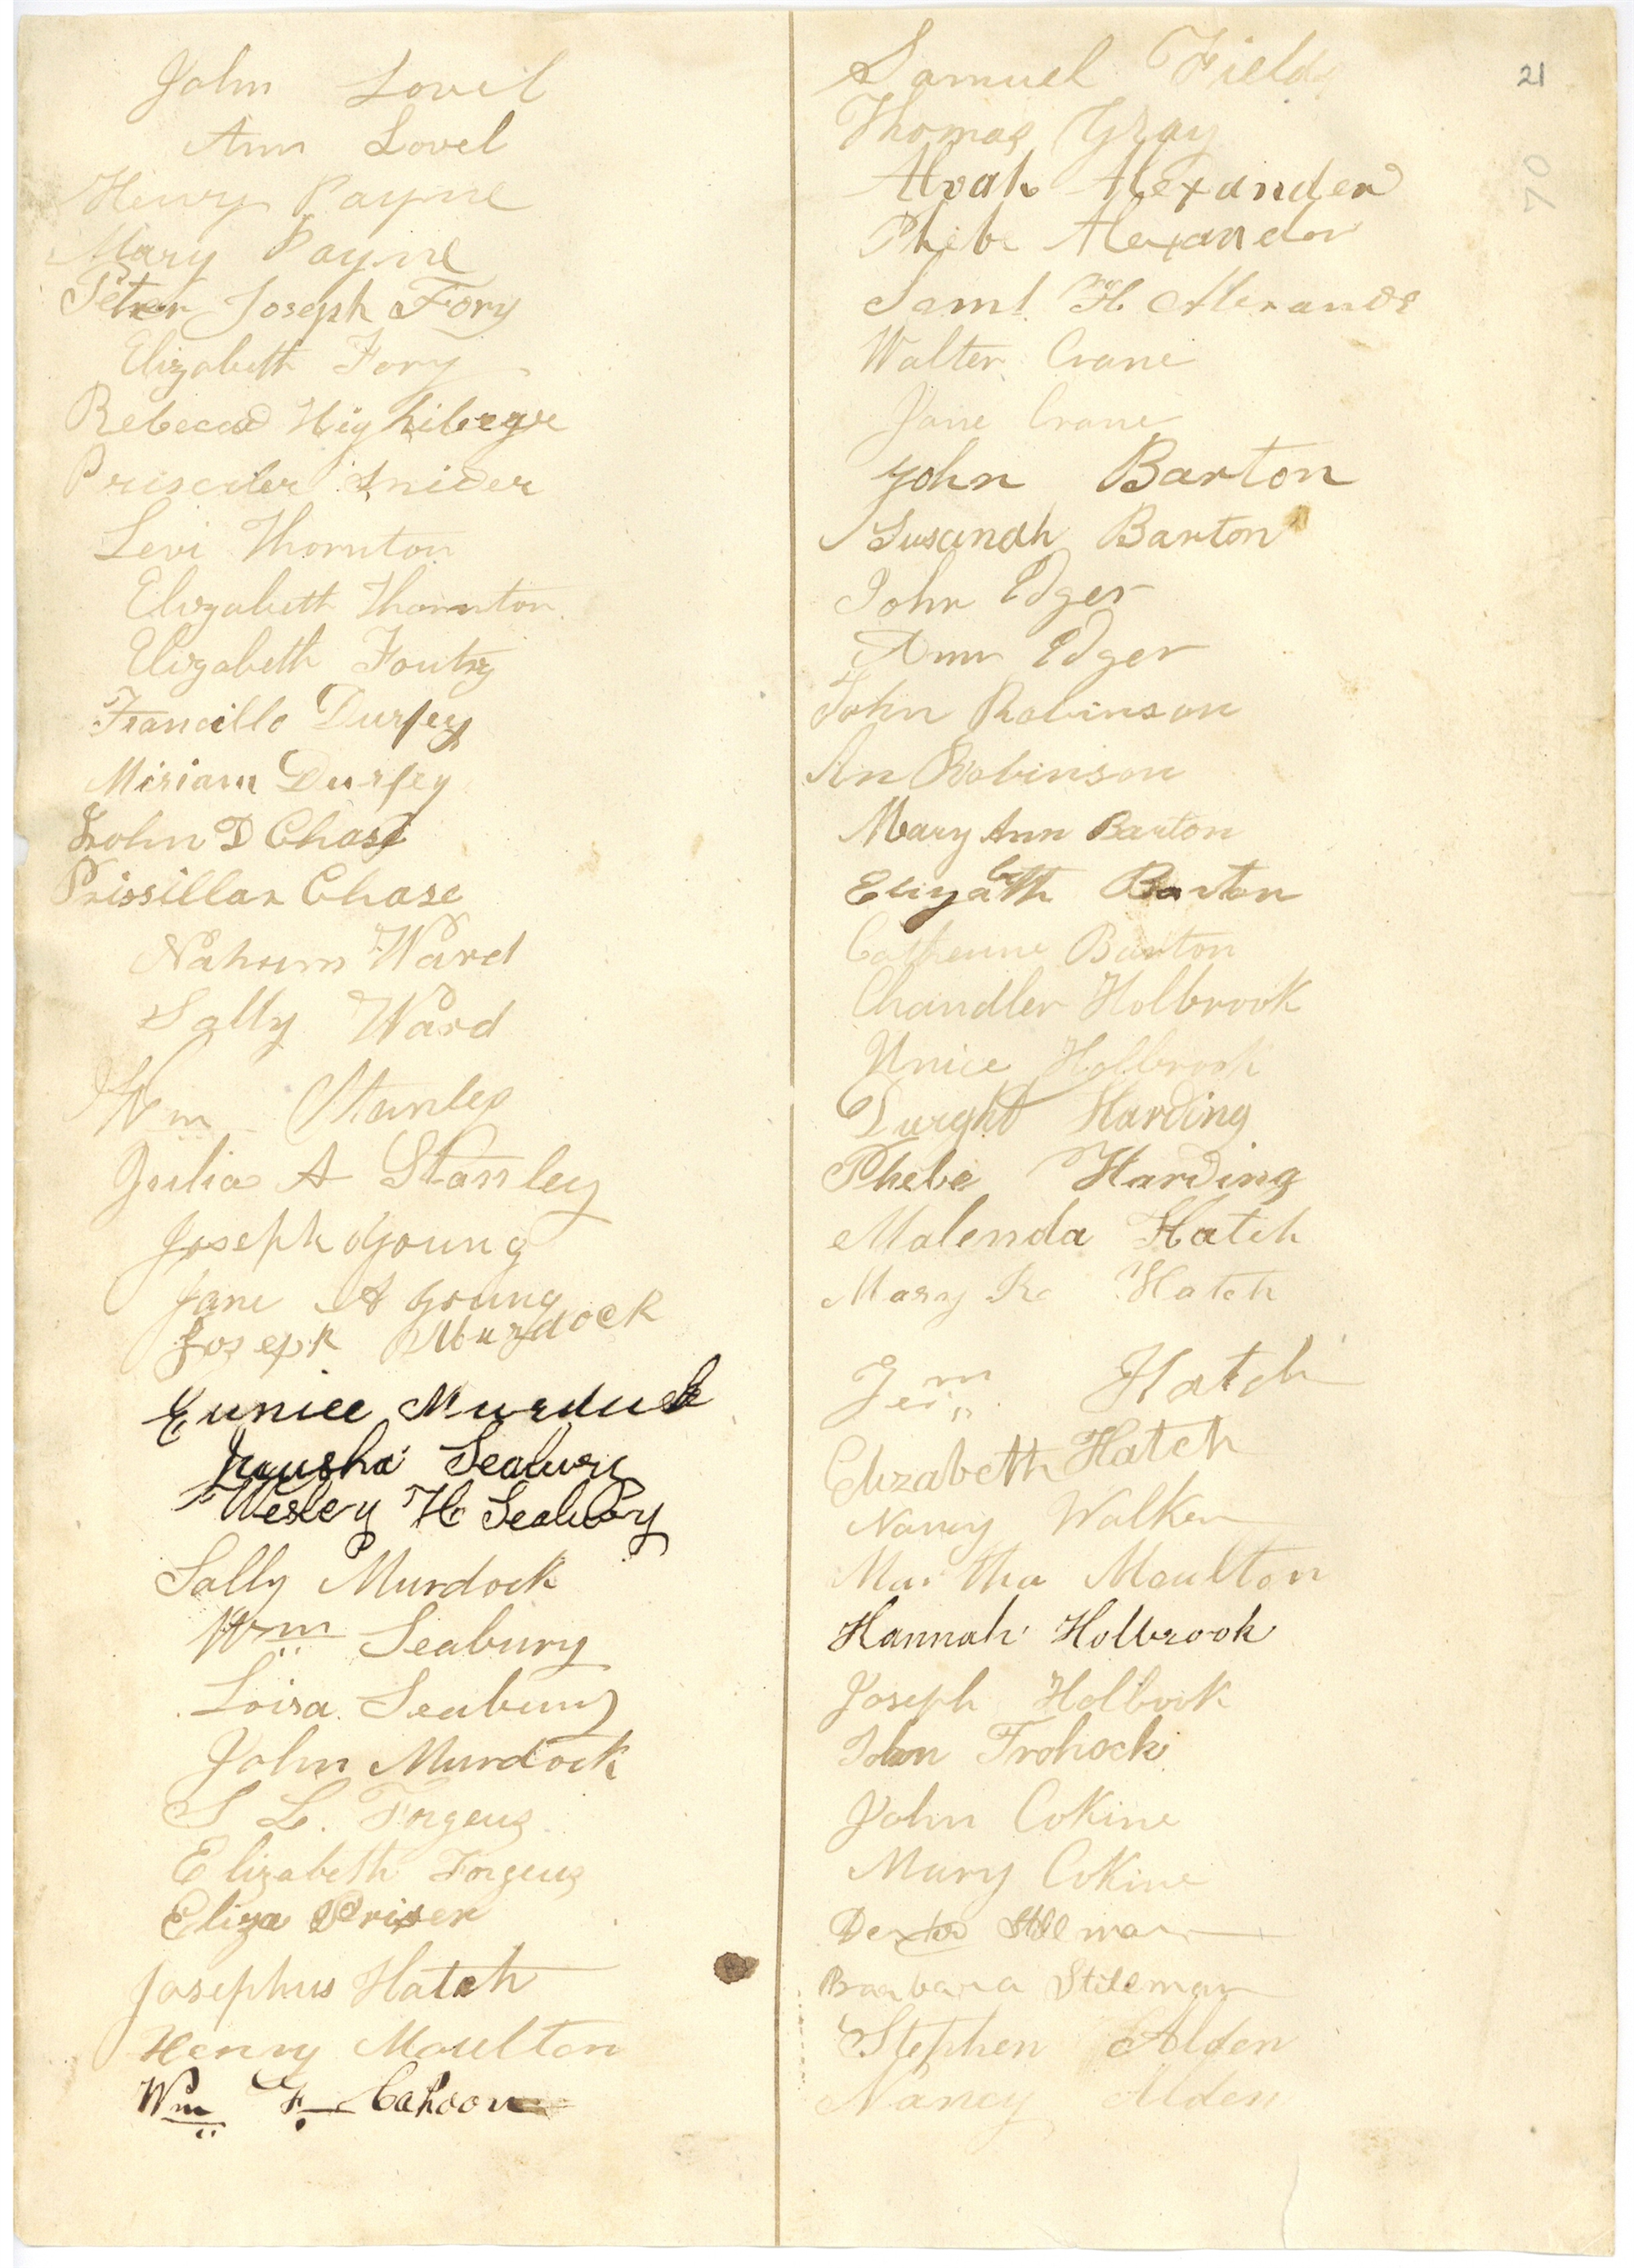 John Lovel
Ann Lovel
Henry Payne
Mary Payne
Peter Joseph Fory
Elizabeth Fory
Rebecca
Snider
Levi Thornton
Elizabeth Thornton
Elizabeth Foutz
Francillo Durfey
Miriam Durfey
John D Chase
Prissillar Chase
Nahum Ward
Sally Ward
Wm Stanley
Julia A Stanley
Joseph Young
Jane A Young
Joseph Murdock
Eunice Murduck
Seabury
Wesley H Seabury
Sally Murdock
Wm Seabury
Loisa Seabury
John Murdock
S L. Forgeus
Elizabeth Forgeus
Eliza Priser
Josephus Hatch
Henry Moulton
Wm F Cahoon
21
70
Samuel Fields
Thomas Gray
Alvah Alexander
Phebe Alexander
Saml H
Walter Crane
Jane Crane
John Barton
Susanah Barton
John Edger
Ann Edger
John Robinson
An Robinson
Mary Ann Barton
Elizabeth Barton
Catherine Barton
Chandler Holbrook
Unice Holbrook
Dwight Harding
Phebe Harding
Malenda Hatch
Mary R Hatch
Jerm Hatch
Elizabeth Hatch
Nancy Walker
Martha Moulton
Hannah Holbrook
Joseph Holbrook
John Frohock
John Cokine
Mary Cokine
Dexter Stillman
Barbara Stileman
Stephen Alden
Nancy Alden